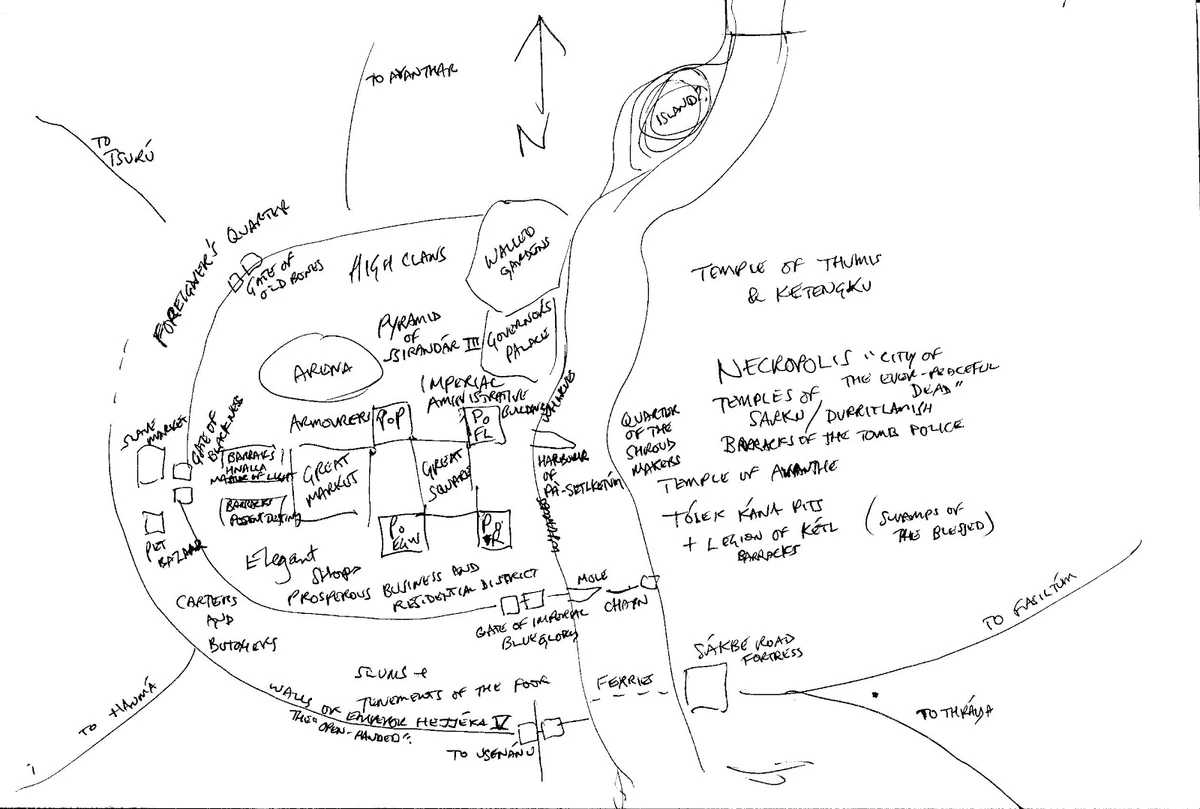 TO AVANTHAR
N
ISLAND?
TO
TSURÚ
FOREIGNER'S QUARTER
GATE OF
OLD BONES
HIGH CLANS
WALLED
GARDENS
TEMPLE OF THUMIS
& KETENGKU
PYRAMID
OF
BIRANDÁR III
GOVERNOR'S
PALACE
ARENA
IMPERIAL
AMINISTRATIVE
BUILDINGS
WHARVES
NECROPOLIS "CITY OF
THE EVER-PEACEFUL
DEAD"
TEMPLES OF
SARKU/DURRITLAMISH
BARRACKS OF THE TOMB POLICE
TEMPLE OF AVANTHE
TÓLEK KÁNA PITS
+ LEGION OF KÉTL
BARRACKS
(SWAMPS OF
THE BLESSED)
SLAVE
MARKET
GATE OF
BLACKNESS
ARMOURERS
PoP
Po
FL
BARRAKS
HNALLA
MASTER OF LIGHT
BARRACKS
GREAT
MARKET
GREAT
SQUARE
HARBOUR
OF
PA-SETLKONÚM
QUARTER
OF THE
SHROUD
MAKERS
Po
EGW
P
PET
BAZAAR
Elegant
Shops
PROSPEROUS BUSINESS AND
RESIDENTIAL DISTRICT
CARTERS
AND
BUTCHERS
MOLE
CHAIN
GATE OF IMPERIAL
BLUE GLORY
SÁKBE ROAD
FORTRESS
TO FASILTÚM
TO THRÁYA
FERRIES
SLUMS +
TENEMENTS OF THE POOR
WALLS OF EMPEROR HEJJÉKA IV
THE "OPEN-HANDED"
TO HAUMÁ
TO USENÁNU